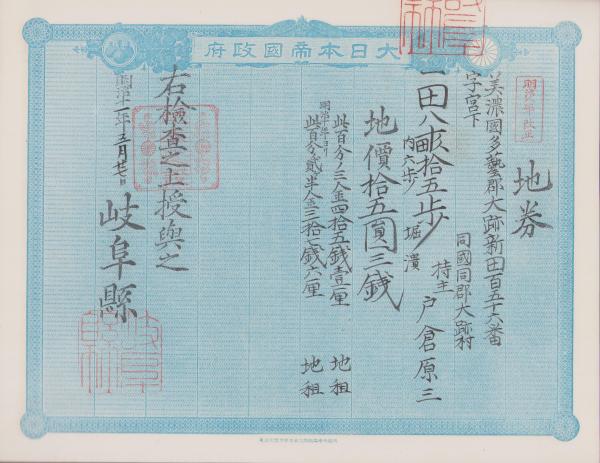 大日本帝國政府
明治九年改正
地券
美濃國多藝郡大跡新田百五十六番
字宮下
同國同郡大跡村
持主 戸倉原三
一田八畝拾五歩
内六歩 堀潰
地價拾五圓三錢
此百分ノ三金四拾五錢壹厘 地租
明治十年ヨリ
此百分ノ貳半金三拾七錢六厘 地租
右檢査之上授與之
明治十一年五月廿七日
岐阜縣